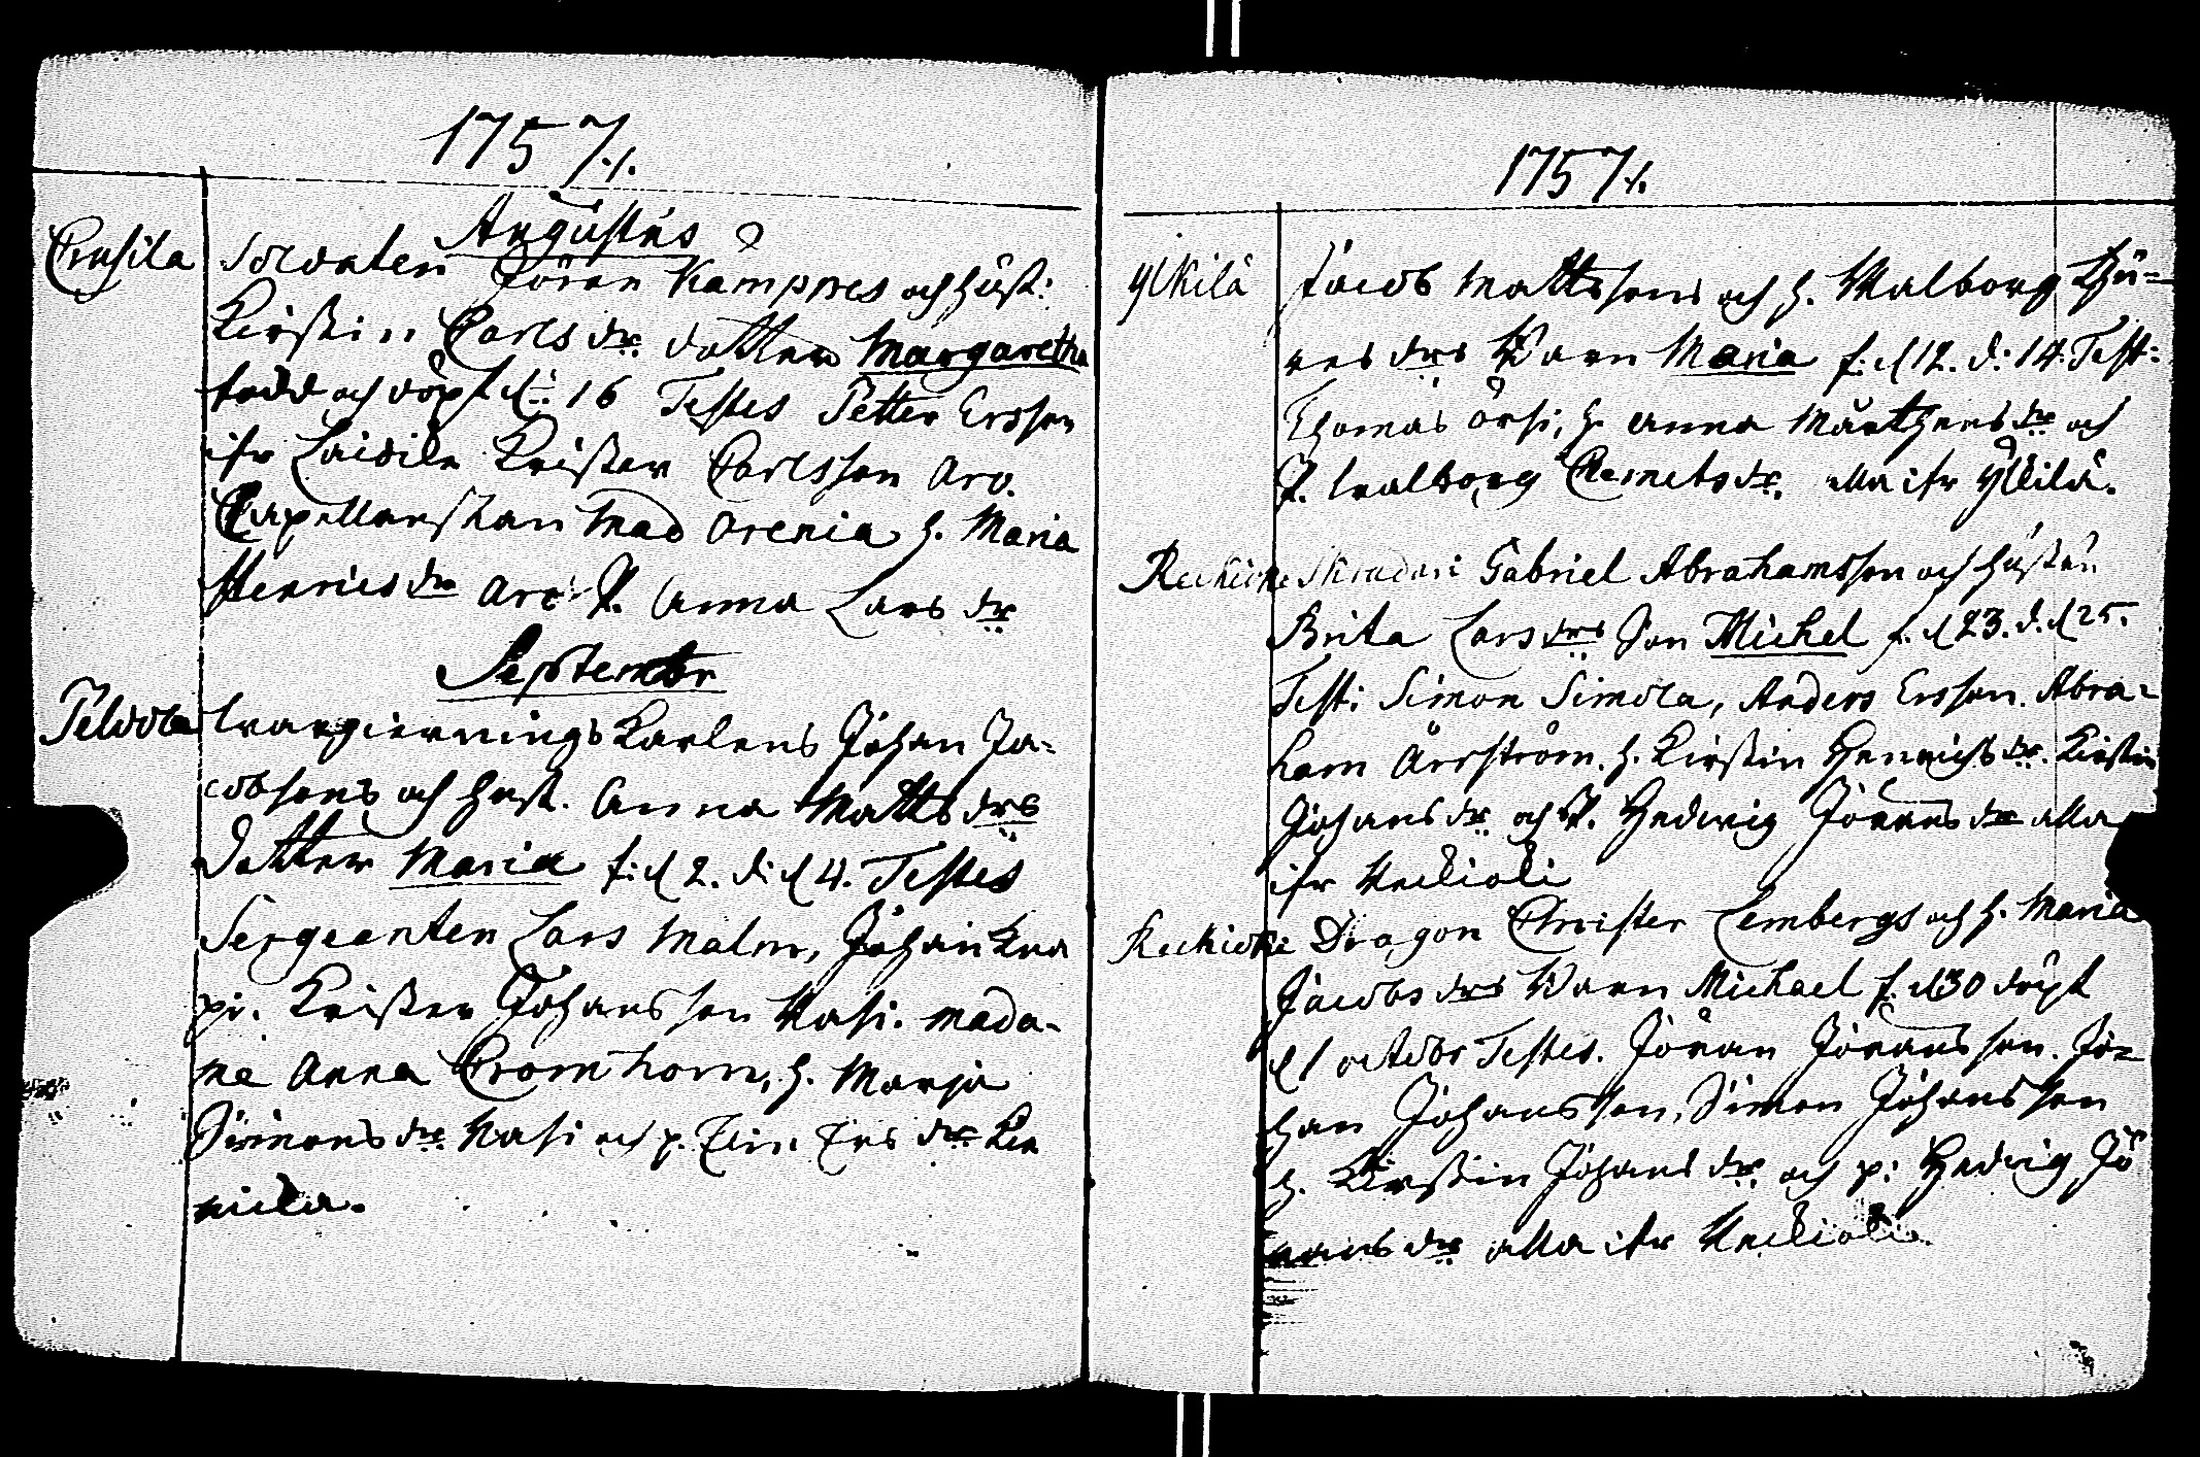 1757./.
Augustus
Crusila Soldaten Jöran Kämppes och hust:
Kirstin Carls dr dotter Margaretha
född och döpt d: 16 Testes Petter Ersson
ifr Laidila Krister Carlsson Arv.
Capellanskan Mad Orenia h. Maria
Henrics dr Arv: P. Anna Lars dr
Septembr
Peldola Wargierningskarlens Johan Ja-
cobsons och hust. Anna Matts drs
dotter Maria f: d 2. d: d 4. Testes
Sergeanten Lars Malm, Johan
pi. Krister Johansson Uasi. Mada-
me Anna Cromhorn, h. Marja
Simons dr Uasi och p. Elin Ers dr

1757./.
Ylikilä Jacob Mattssons och h. Walborg Thu-
res drs Barn Maria f: d 12. d: 14. Test:
Thomas Örsi, h. Anna Mårthens dr och
P. Walborg Clemets dr. alla ifr Ylikilä.
Reckioki Skrädari Gabriel Abrahamsson och hustrun
Brita Lars drs Son Michel f. d 23. d. d 25.
Test: Simon Simola, Anders Ersson. Abra-
ham Årrström. h. Kirstin Henrichs dr. Kirstin
Johans dr och P. Hedwig Jörans dr alla
ifr Reckioki
Reckioki Dragon Christer Lembergs och h. Maria
Jacobs drs Barn Michael f. d 30 döpt
d 1 octobr Testes. Jöran Jöransson. Jo-
han Johansson, Simon Johansson
h. Kirstin Johans dr och p: Hedwig Jö
rans dr alla ifr Reckioki